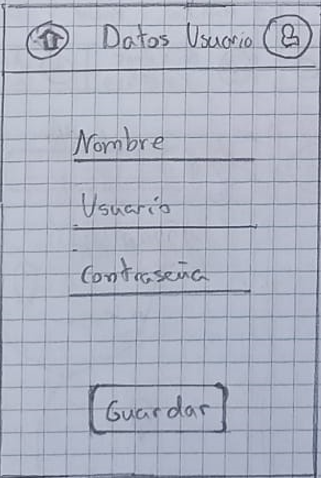 Datos Usuario
Nombre
Usuario
Contraseña
Guardar